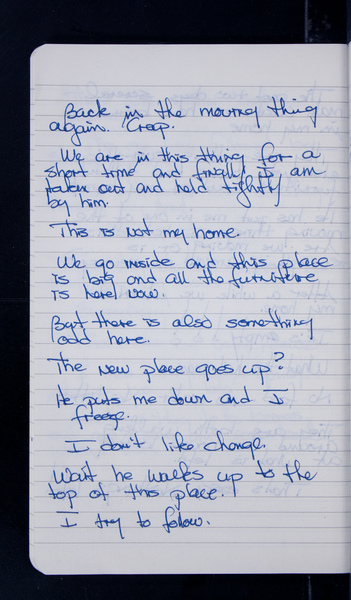 Back in the moving thing
again. Crap.
We are in this thing for a
short time and finally I am
taken out and held tightly
by him.
This is not my home.
We go inside and this place
is big and all the furniture
is here now.
But there is also something
odd here.
The new place goes up?
He puts me down and I
freeze.
I don't like change.
Wait he walks up to the
top of this place.
I try to follow.